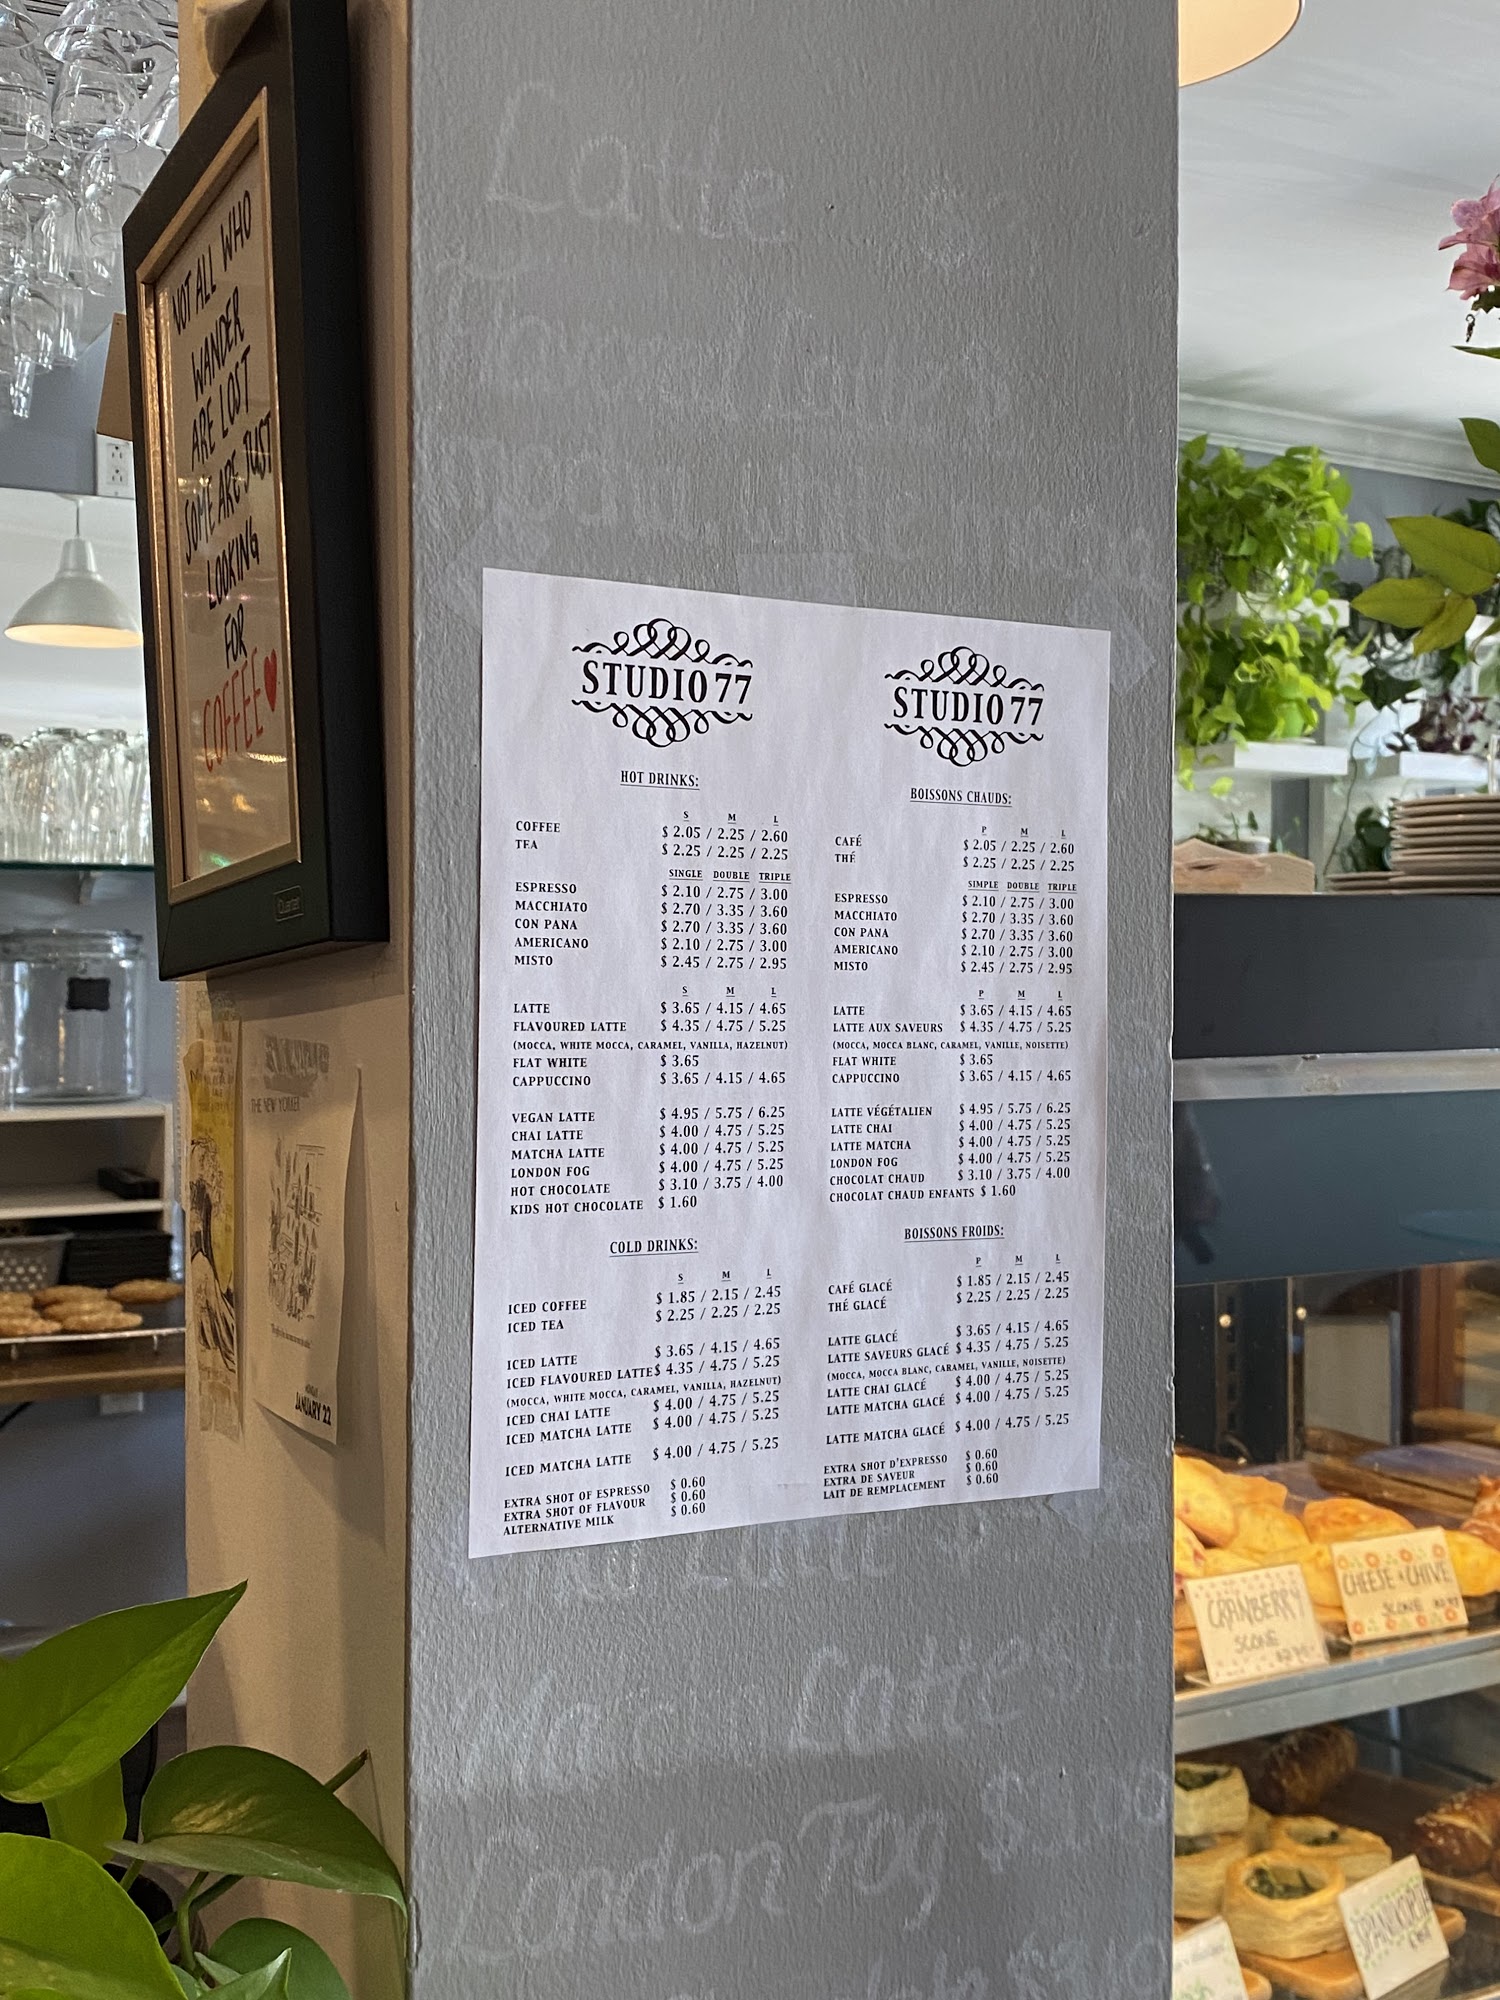 NOT ALL WHO
WANDER
ARE LOST
SOME ARE JUST
LOOKING
FOR
COFFEE
THE NEW YORKER
MONDAY
JANUARY 22
Latte
STUDIO 77
HOT DRINKS:
S M L
COFFEE $ 2.05 / 2.25 / 2.60
TEA $ 2.25 / 2.25 / 2.25
SINGLE DOUBLE TRIPLE
ESPRESSO $ 2.10 / 2.75 / 3.00
MACCHIATO $ 2.70 / 3.35 / 3.60
CON PANA $ 2.70 / 3.35 / 3.60
AMERICANO $ 2.10 / 2.75 / 3.00
MISTO $ 2.45 / 2.75 / 2.95
S M L
LATTE $ 3.65 / 4.15 / 4.65
FLAVOURED LATTE $ 4.35 / 4.75 / 5.25
(MOCCA, WHITE MOCCA, CARAMEL, VANILLA, HAZELNUT)
FLAT WHITE $ 3.65
CAPPUCCINO $ 3.65 / 4.15 / 4.65
VEGAN LATTE $ 4.95 / 5.75 / 6.25
CHAI LATTE $ 4.00 / 4.75 / 5.25
MATCHA LATTE $ 4.00 / 4.75 / 5.25
LONDON FOG $ 4.00 / 4.75 / 5.25
HOT CHOCOLATE $ 3.10 / 3.75 / 4.00
KIDS HOT CHOCOLATE $ 1.60
COLD DRINKS:
S M L
ICED COFFEE $ 1.85 / 2.15 / 2.45
ICED TEA $ 2.25 / 2.25 / 2.25
ICED LATTE $ 3.65 / 4.15 / 4.65
ICED FLAVOURED LATTE $ 4.35 / 4.75 / 5.25
(MOCCA, WHITE MOCCA, CARAMEL, VANILLA, HAZELNUT)
ICED CHAI LATTE $ 4.00 / 4.75 / 5.25
ICED MATCHA LATTE $ 4.00 / 4.75 / 5.25
ICED MATCHA LATTE $ 4.00 / 4.75 / 5.25
EXTRA SHOT OF ESPRESSO $ 0.60
EXTRA SHOT OF FLAVOUR $ 0.60
ALTERNATIVE MILK $ 0.60
STUDIO 77
BOISSONS CHAUDS:
P M L
CAFÉ $ 2.05 / 2.25 / 2.60
THÉ $ 2.25 / 2.25 / 2.25
SIMPLE DOUBLE TRIPLE
ESPRESSO $ 2.10 / 2.75 / 3.00
MACCHIATO $ 2.70 / 3.35 / 3.60
CON PANA $ 2.70 / 3.35 / 3.60
AMERICANO $ 2.10 / 2.75 / 3.00
MISTO $ 2.45 / 2.75 / 2.95
P M L
LATTE $ 3.65 / 4.15 / 4.65
LATTE AUX SAVEURS $ 4.35 / 4.75 / 5.25
(MOCCA, MOCCA BLANC, CARAMEL, VANILLE, NOISETTE)
FLAT WHITE $ 3.65
CAPPUCCINO $ 3.65 / 4.15 / 4.65
LATTE VÉGÉTALIEN $ 4.95 / 5.75 / 6.25
LATTE CHAI $ 4.00 / 4.75 / 5.25
LATTE MATCHA $ 4.00 / 4.75 / 5.25
LONDON FOG $ 4.00 / 4.75 / 5.25
CHOCOLAT CHAUD $ 3.10 / 3.75 / 4.00
CHOCOLAT CHAUD ENFANTS $ 1.60
BOISSONS FROIDS:
P M L
CAFÉ GLACÉ $ 1.85 / 2.15 / 2.45
THÉ GLACÉ $ 2.25 / 2.25 / 2.25
LATTE GLACÉ $ 3.65 / 4.15 / 4.65
LATTE SAVEURS GLACÉ $ 4.35 / 4.75 / 5.25
(MOCCA, MOCCA BLANC, CARAMEL, VANILLE, NOISETTE)
LATTE CHAI GLACÉ $ 4.00 / 4.75 / 5.25
LATTE MATCHA GLACÉ $ 4.00 / 4.75 / 5.25
LATTE MATCHA GLACÉ $ 4.00 / 4.75 / 5.25
EXTRA SHOT D'EXPRESSO $ 0.60
EXTRA DE SAVEUR $ 0.60
LAIT DE REMPLACEMENT $ 0.60
Latte
Latte
London Fog
CRANBERRY
SCONE
CHEESE + CHIVE
SCONE